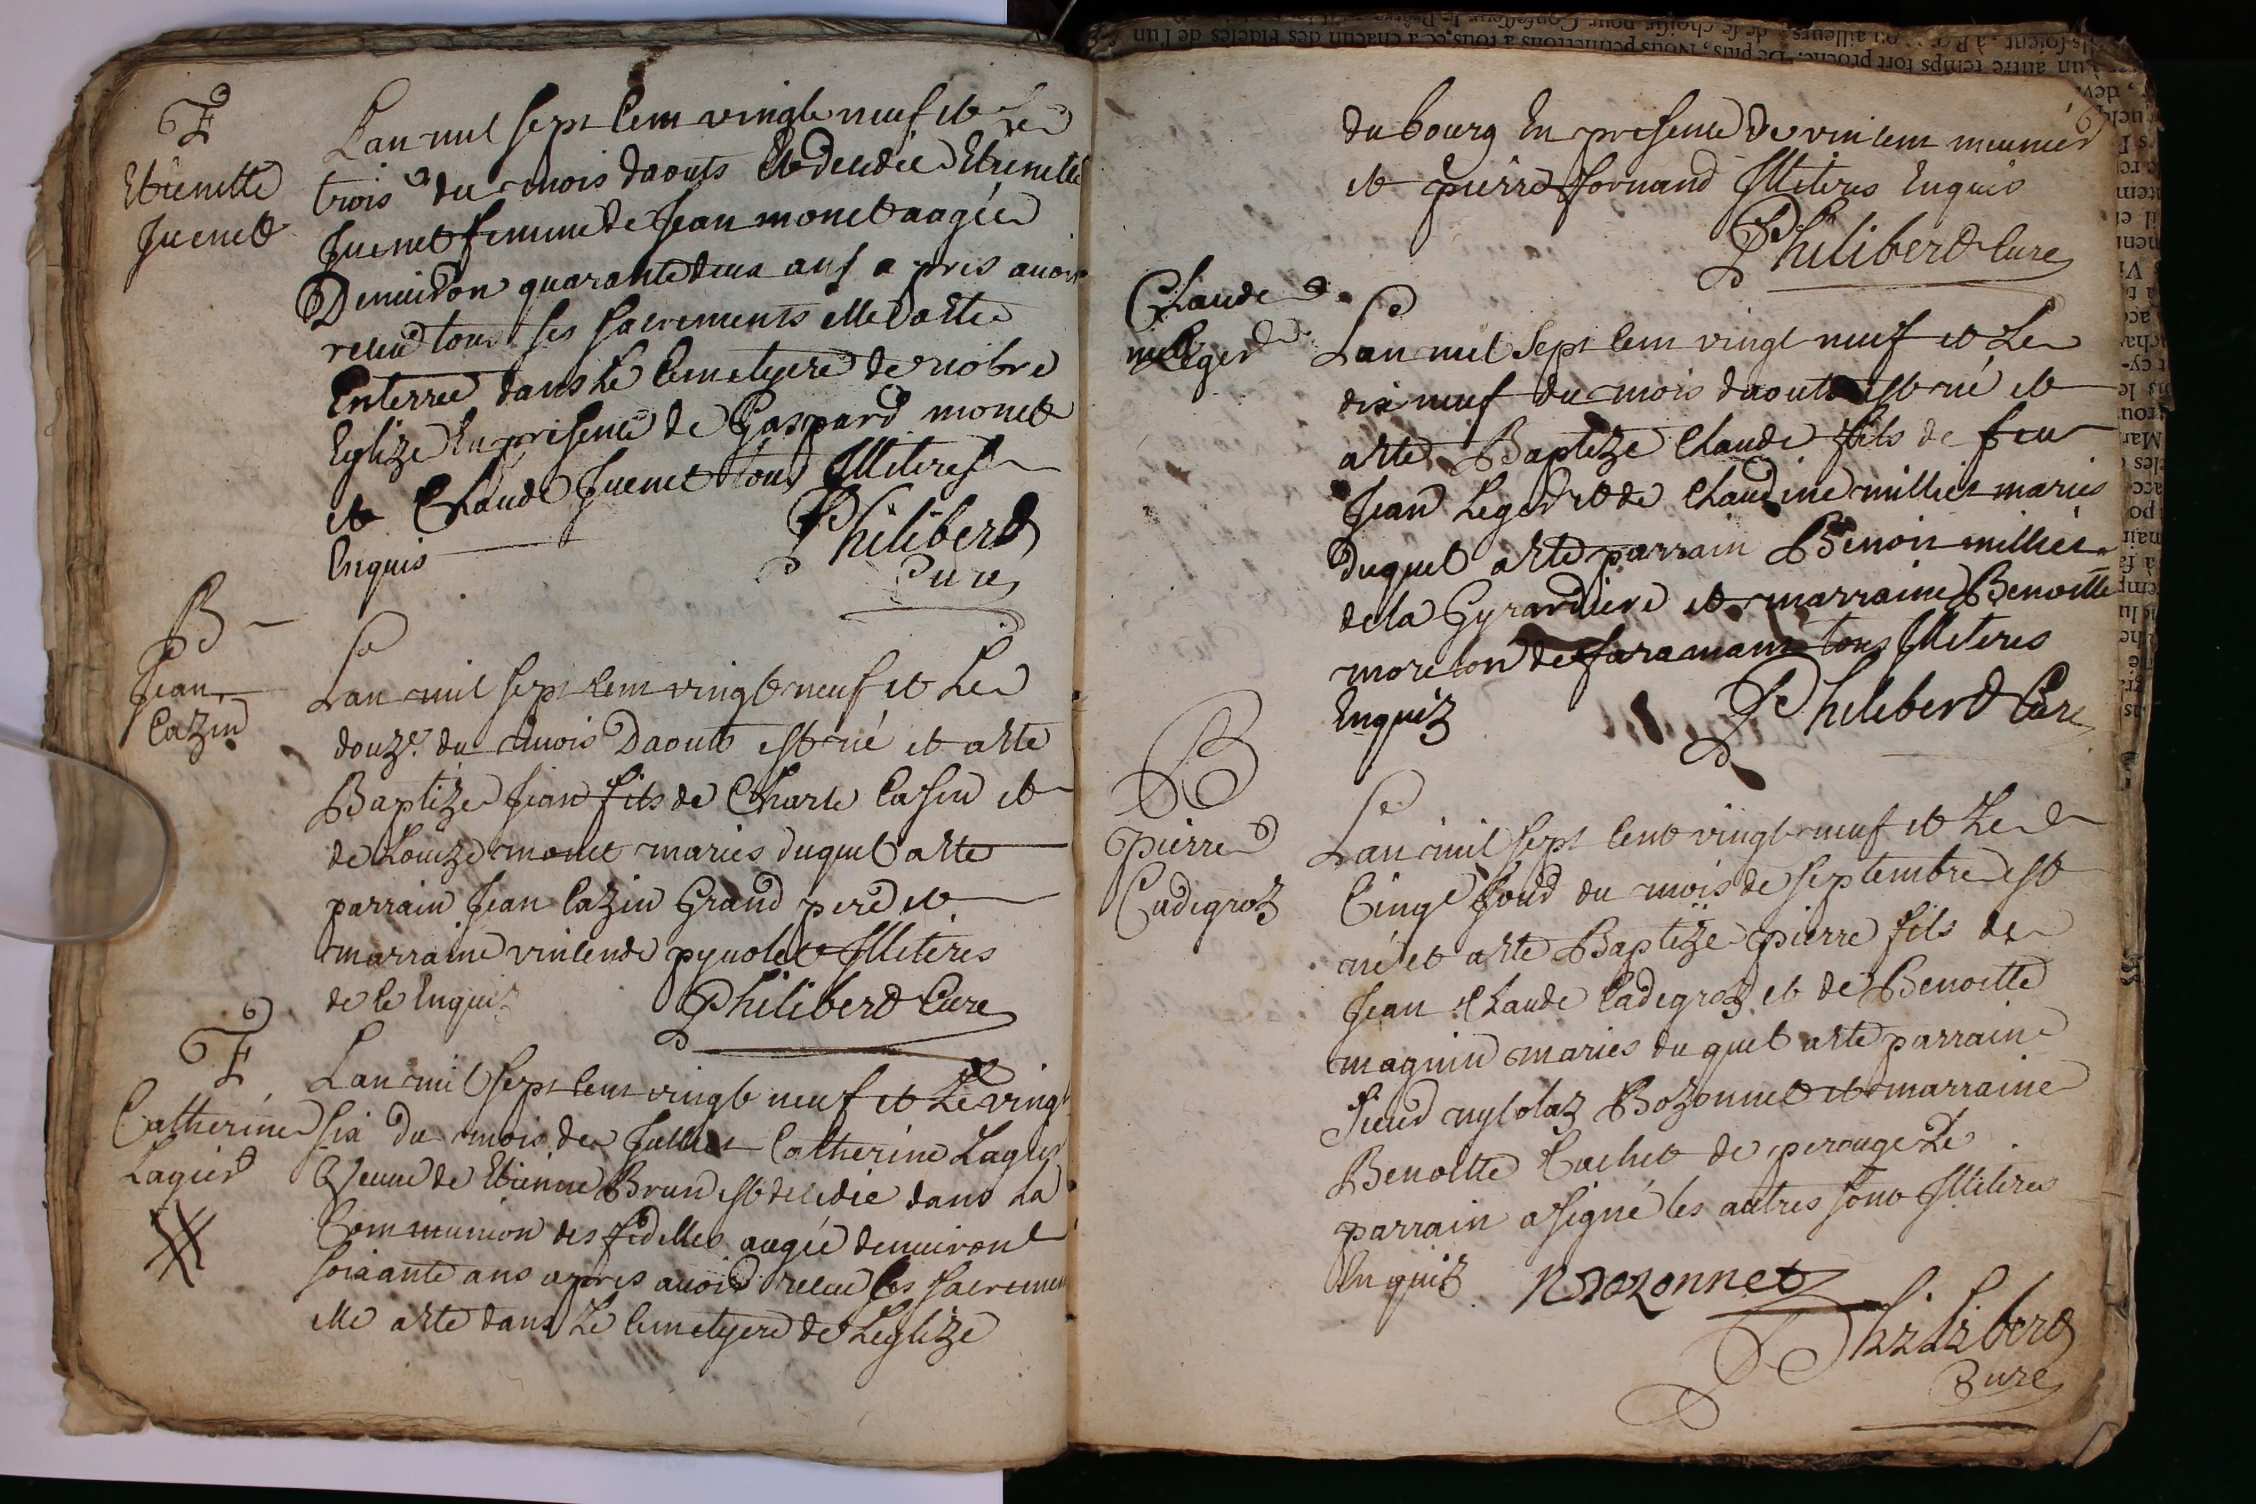 F
Etienette
Juenet
Lan mil sept cent vingt neuf et le
trois du mois daouts est decedée Etienette
Juenet femme de Jean monet aagée
Denuiron quarante deux ans a pres auoir
receu tous ses sacrements elle a esté
Enterrée dans le cemetyere de notre
Eglize En presence de Gaspard monet
et Claude Juenet tous Illiteres
Enquis
Philiberd
Curé
B
Jean
Cazin
Lan mil sept cent vingt neuf et Le
douze du mois Daout est né et a esté
Baptizé Jean fils de Charle Casin et
de Louize monet mariés duquel a esté
parrain Jean Cazin Grand pere et
marraine vincende pynolet Illiteres
de ce Enquis
Philiberd Cure
F
Catherine
Lagier
Lan mil sept cent vingt neuf et Le vingt
six du mois de Juliet Catherine Lagier
Veuue de Etienne Brun est decedée dans La
Communion des fidelles aagée denuiron
soixante ans apres auoir receu les sacrements
elle a esté dans Le cemetyere de Leglize
du bourg En presence de vincent meunier
et pierre fornand Illiteres Enquis
Philiberd Cure
Claude
Leger
Lan mil sept cent vingt neuf et Le
dix neuf du mois daout est né et
a esté Baptizé Claude fils de feu
Jean Leger et de Claudine milliet mariés
duquel a esté parrain Benoit milliet
de la Gyrardiere et marraine Benoitte
moreton de faramans tous Illiteres
Enquiz
Philiberd Cure
B
Pierre
Cadegroz
Lan mil sept cent vingt neuf et Le
Cinqe Jour du mois de septembre est
né et a esté Baptizé pierre fils de
Jean Claude Cadegroz et de Benoitte
magnin mariés du quel a esté parrain
sieur nycolaz Bozonnet et marraine
Benoitte Cachet de perouge Le
parrain a signé les autres sont Illiteres
Enquiz
N Bozonnet
Philiberd
Cure